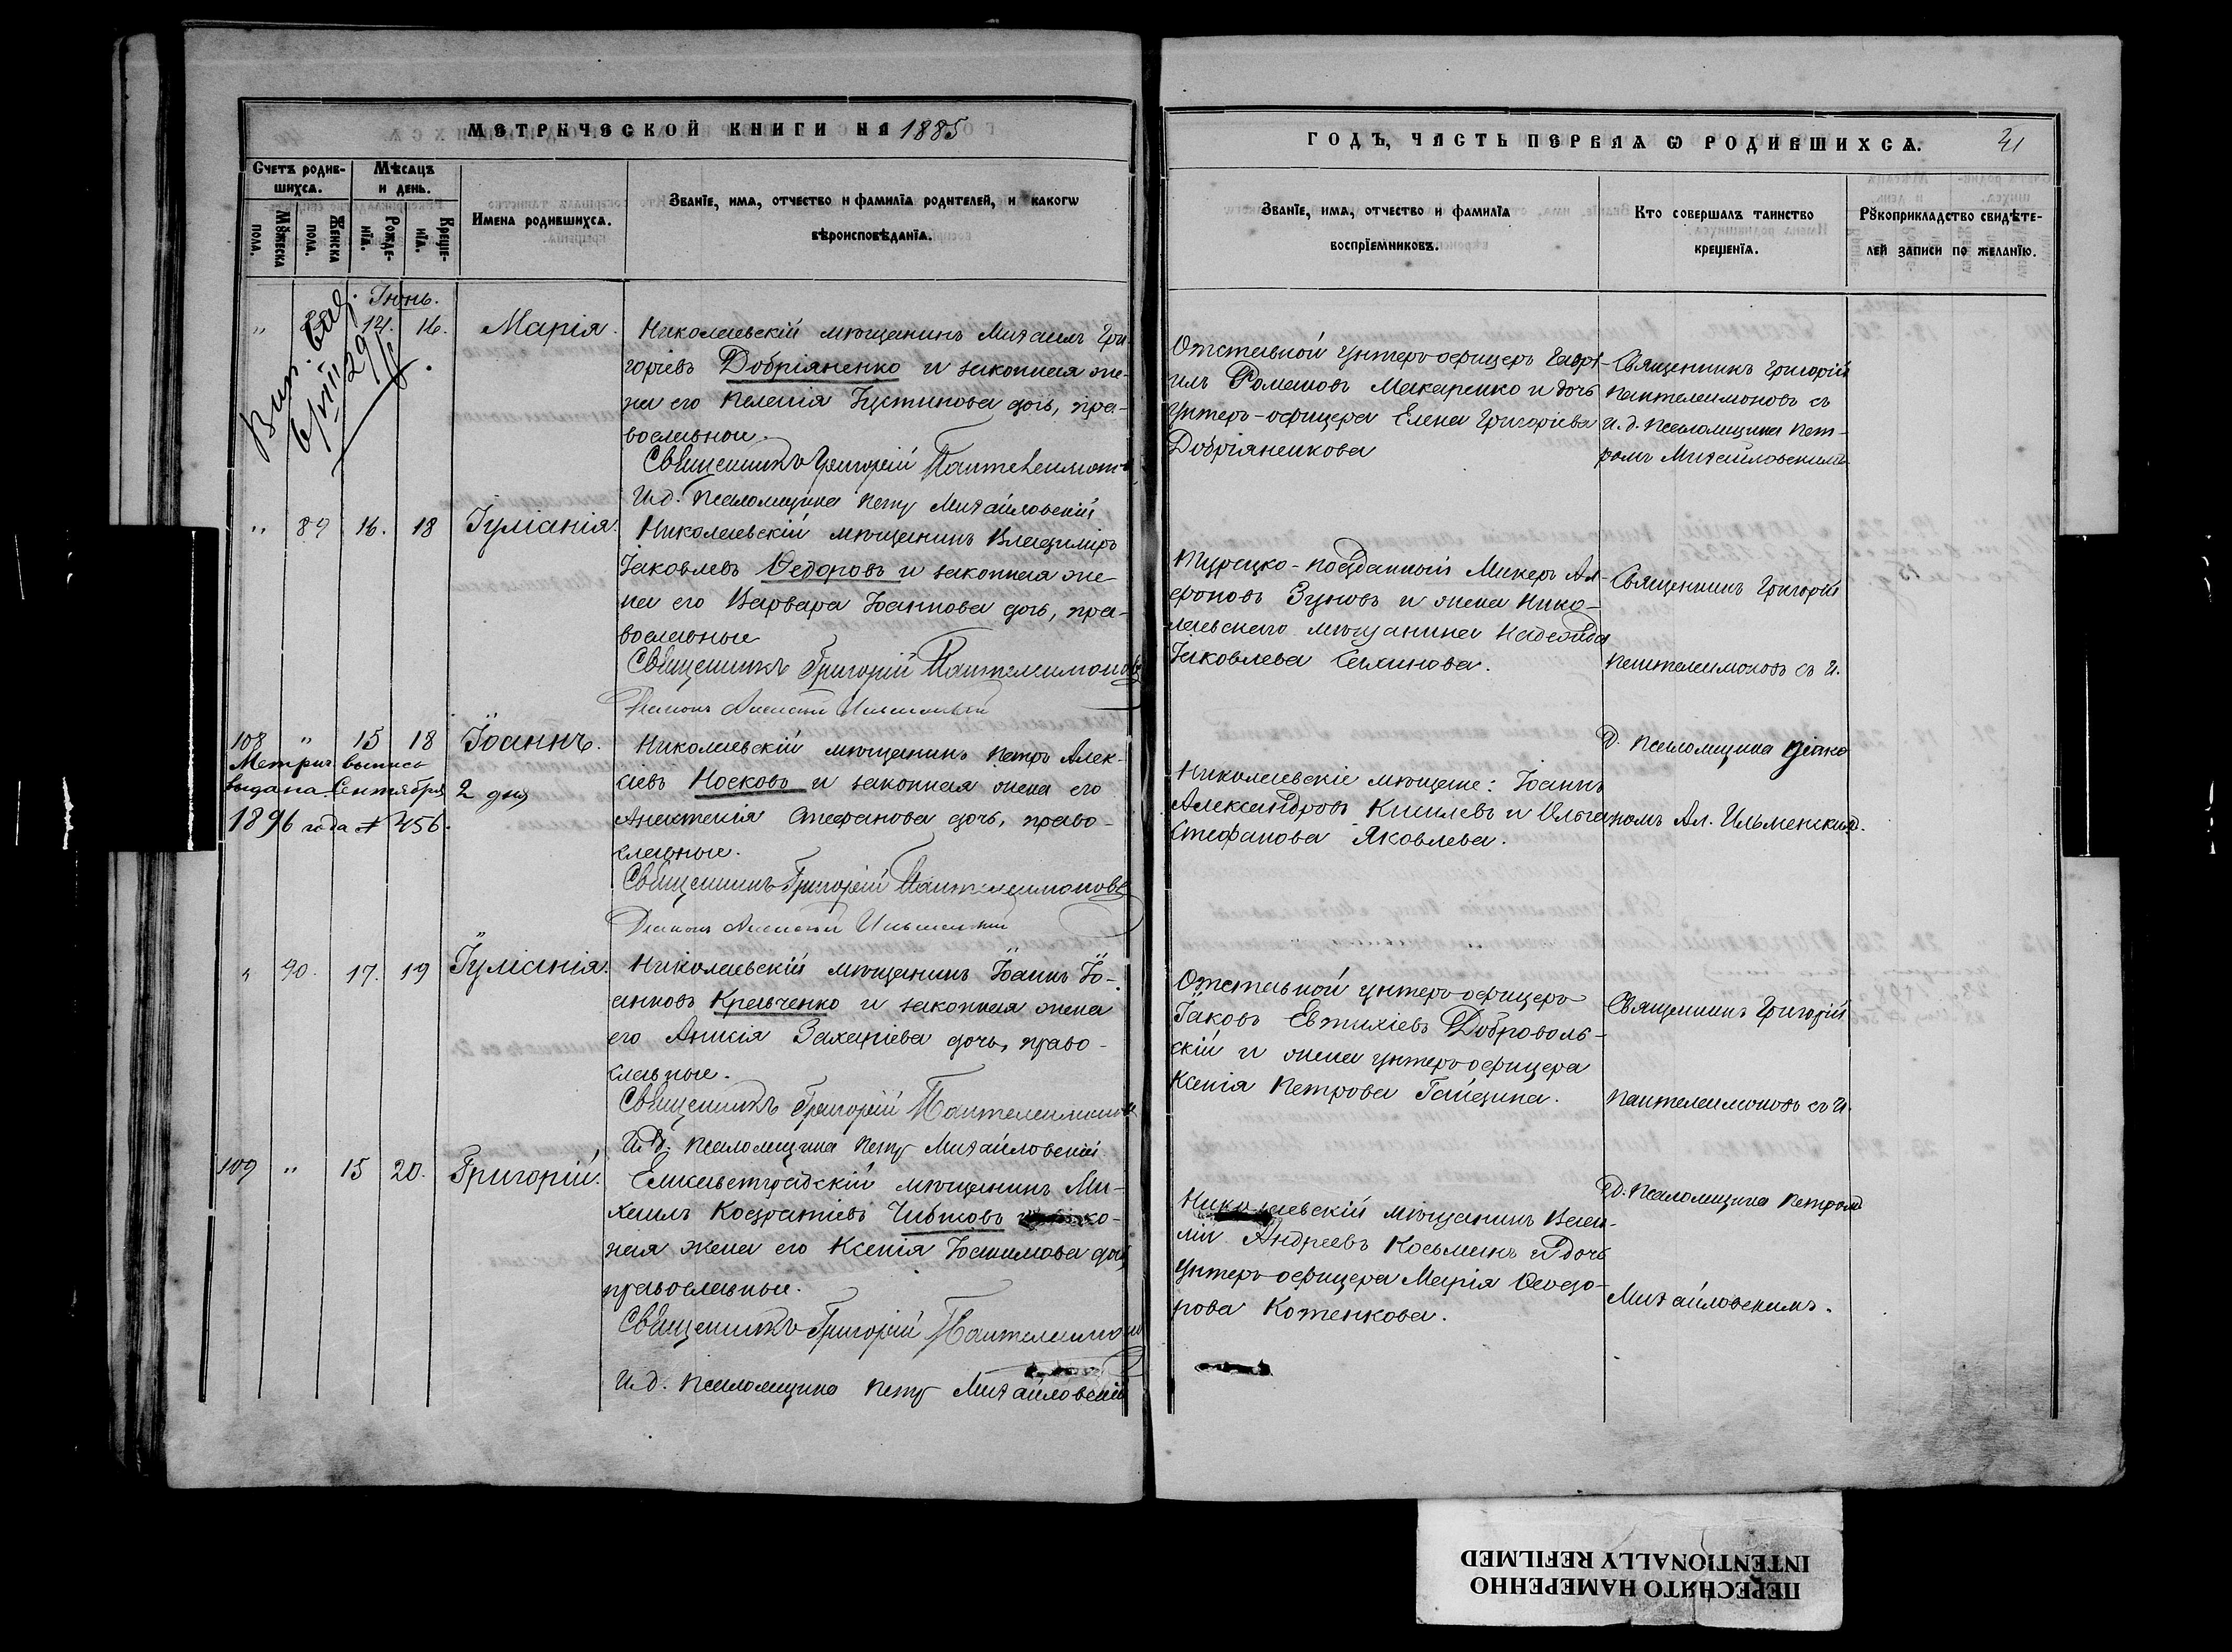 МЕТРИЧЕСКОЙ КНИГИ НА 1885
Счетъ родив-
шихсѧ.
Мѣсѧцъ
и день.
Мꙋжеска
пола.
Женска
пола.
Рожде-
нїѧ.
Креще-
нїѧ.
Имена родившихсѧ.
Званїе, имѧ, отчество и фамилїѧ родителей, и какогѡ
вѣроисповѣданїѧ.
Іюнь.
" 14. 16. Марія.
Николаевскій мѣщанинъ Михаилъ Гри-
горіевъ Добріяненко и законная же-
на его Пелагія Іустинова дочь, пра-
вославные.
Священникъ Григорій Пантелеимоновъ
И.д. Псаломщика Петръ Михайловскій
" 89 16. 18 Іуліанія.
Николаевскій мѣщанинъ Владиміръ
Іаковлевъ Ѳедоровъ и законная же-
на его Варвара Іоаннова дочь, пра-
вославные
Священникъ Григорій Пантелеимоновъ
Діаконъ Алексій Ильменскій
108 " 15 18 Іоаннъ.
Метрич. выпись
выдана Сентября 2 дня
1896 года № 456.
Николаевскій мѣщанинъ Петръ Алек-
сіевъ Носковъ и законная жена его
Анастасія Стефанова дочь, право-
славные.
Священникъ Григорій Пантелеимоновъ
Діаконъ Алексій Ильменскій
" 90. 17. 19 Іуліанія.
Николаевскій мѣщанинъ Іоаннъ Іо-
анновъ Кравченко и законная жена
его Анисія Захаріева дочь, право-
славные.
Священникъ Григорій Пантелеимоновъ
И.д. Псаломщика Петръ Михайловскій
109 " 15 20. Григорій.
Елисаветградскій мѣщанинъ Ми-
хаилъ Кодратіевъ
ная жена его Ксенія Іоакимова дочь,
православные.
Священникъ Григорій Пантелеимоновъ
И.д. Псаломщика Петръ Михайловскій
ГОДЪ, ЧАСТЬ ПЕРВАѦ Ѡ РОДИВШИХСѦ. 41
Званїе, имѧ, отчество и фамилїѧ
воспрїемниковъ.
Кто совершалъ таинство
крещенїѧ.
Рꙋкоприкладство свидѣте-
лей записи по желанїю.
Отставной унтеръ-офицеръ Гаврі-
илъ Романовъ Макаренко и дочь
унтеръ-офицера Елена Григоріева
Добріяненкова
Священникъ Григорій
Пантелеимоновъ съ
и.д. псаломщика Пет-
ромъ Михайловскимъ
Турецко-подданный
и жена Нико-
лаевскаго мѣщанина Надежда
Іаковлева
Священникъ Григорій
Пантелеимоновъ съ И.
Николаевскіе мѣщане: Іоаннъ
Александровъ Киселевъ и Ольга
Стефанова Яковлева.
Д. Псаломщика Діако
номъ Ал. Ильменским.
Отставной унтеръ-офицеръ
Іаковъ Евтихіевъ Доброволь-
скій и жена унтеръ-офицера
Ксенія Петрова
Священникъ Григорій
Пантелеимоновъ съ И.
Николаевскій мѣщанинъ Васи-
лій Андреевъ Косьминъ и дочь
унтеръ-офицера Марія Ѳеодо-
рова Котенкова.
Д. Псаломщика Петромъ
Михайловскимъ.
ПЕРЕСНЯТО НАМЕРЕННО
INTENTIONALLY REFILMED